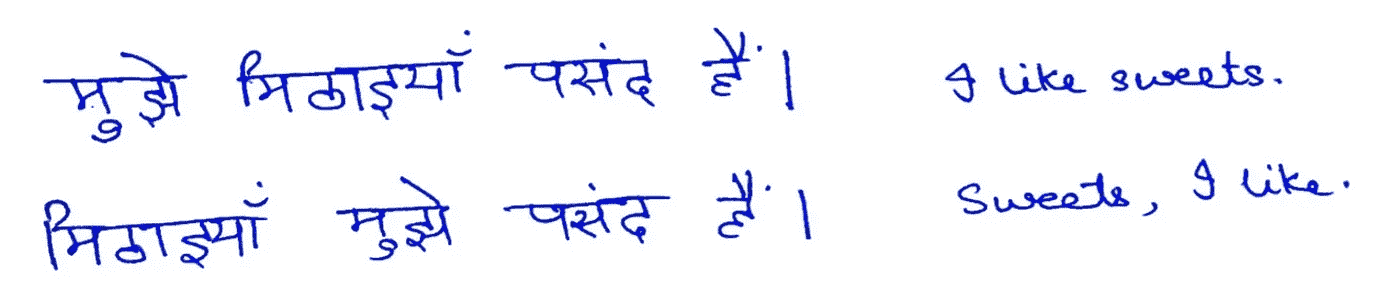 मुझे मिठाइयाँ पसंद हैं। I like sweets.
मिठाइयाँ मुझे पसंद हैं। Sweets, I like.